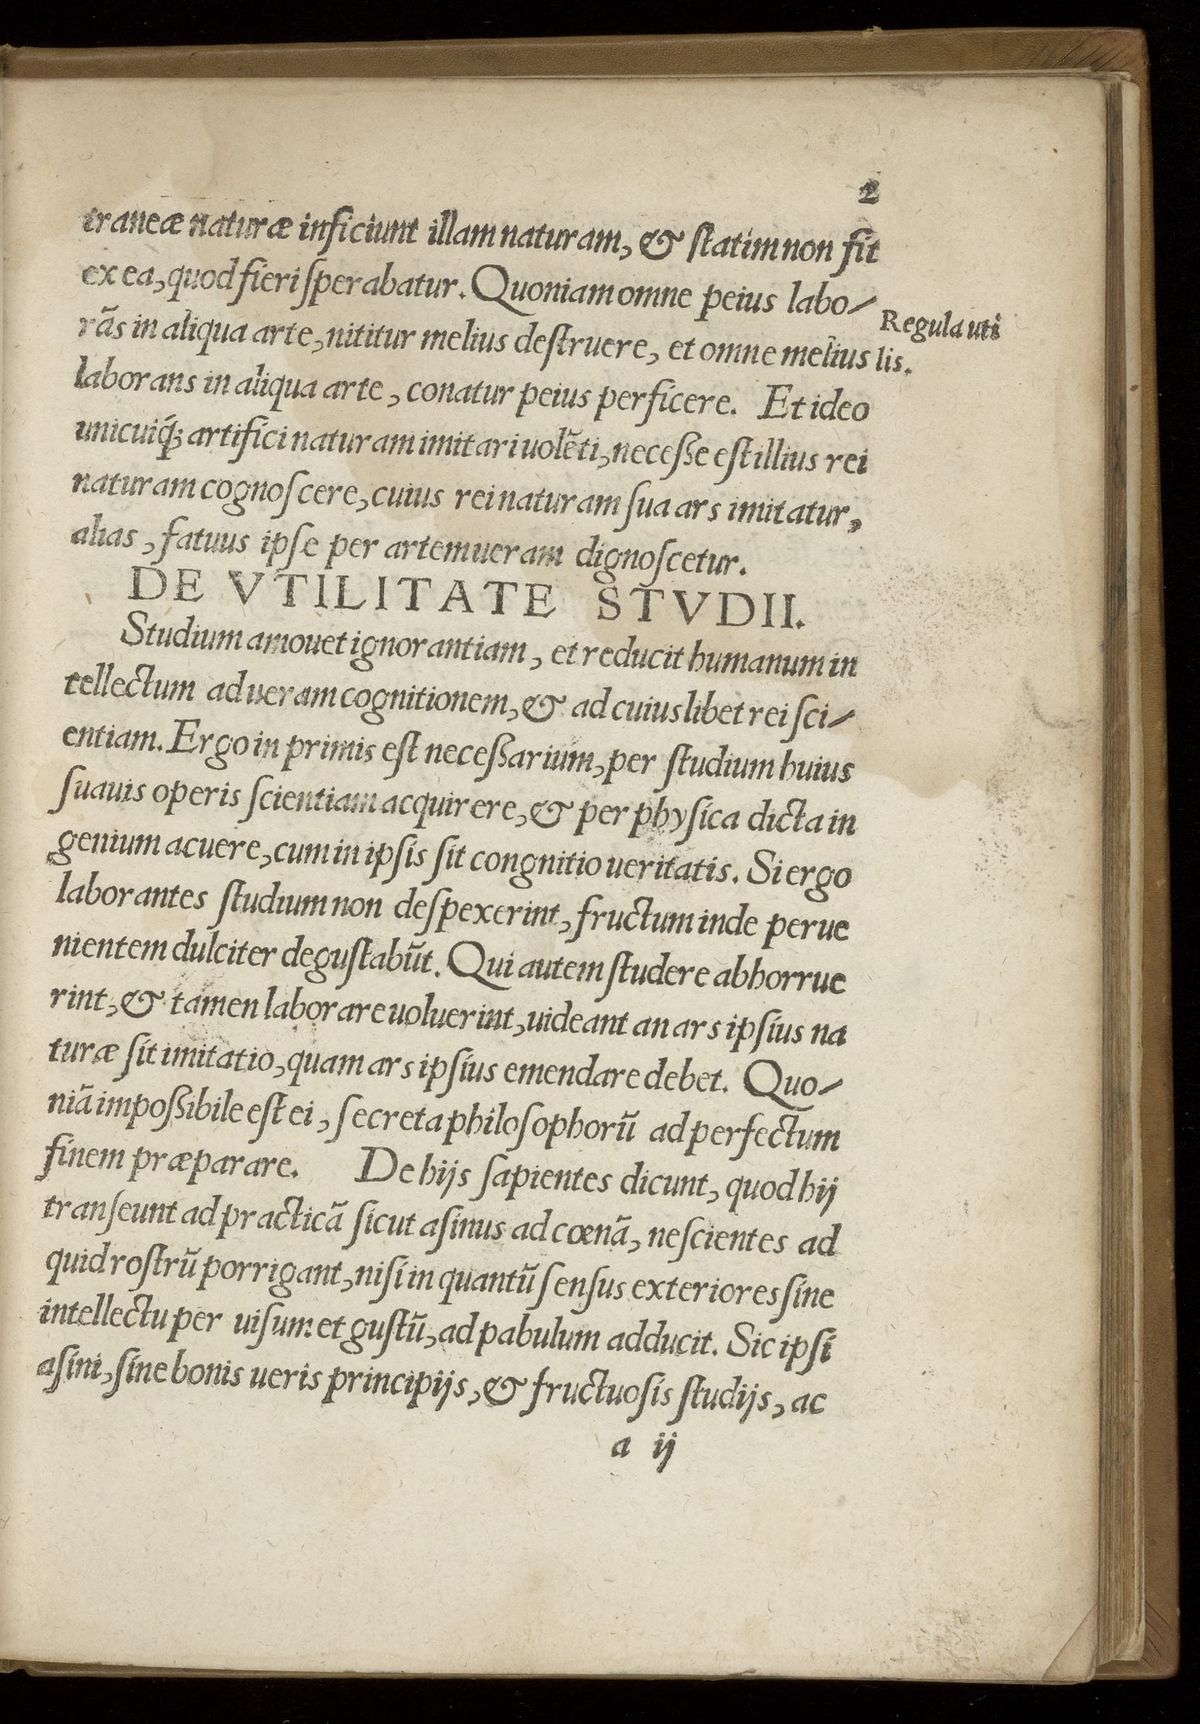 2
traneæ naturæ inficiunt illam naturam, & statim non fit
ex ea, quod fieri sperabatur. Quoniam omne peius labo-
rãs in aliqua arte, nititur melius destruere, et omne melius
Regula uti
lis.
laborans in aliqua arte, conatur peius perficere. Et ideo
unicuiq́; artifici naturam imitari uolẽti, necesse est illius rei
naturam cognoscere, cuius rei naturam sua ars imitatur,
alias, fatuus ipse per artem ueram dignoscetur.
DE VTILITATE STVDII.
Studium amouet ignorantiam, et reducit humanum in
tellectum ad ueram cognitionem, & ad cuiuslibet rei sci-
entiam. Ergo in primis est necessarium, per studium huius
suauis operis scientiam acquirere, & per physica dicta in
genium acuere, cum in ipsis sit congnitio ueritatis. Si ergo
laborantes studium non despexerint, fructum inde perue
nientem dulciter degustabũt. Qui autem studere abhorrue
rint, & tamen laborare uoluerint, uideant an ars ipsius na
turæ sit imitatio, quam ars ipsius emendare debet. Quo-
niã impossibile est ei, secreta philosophorũ ad perfectum
finem præparare. De hijs sapientes dicunt, quod hij
transeunt ad practicã sicut asinus ad cœnã, nescientes ad
quid rostrũ porrigant, nisi in quantũ sensus exteriores sine
intellectu per uisum et gustũ, ad pabulum adducit. Sic ipsi
asini, sine bonis ueris principijs, & fructuosis studijs, ac
a ij